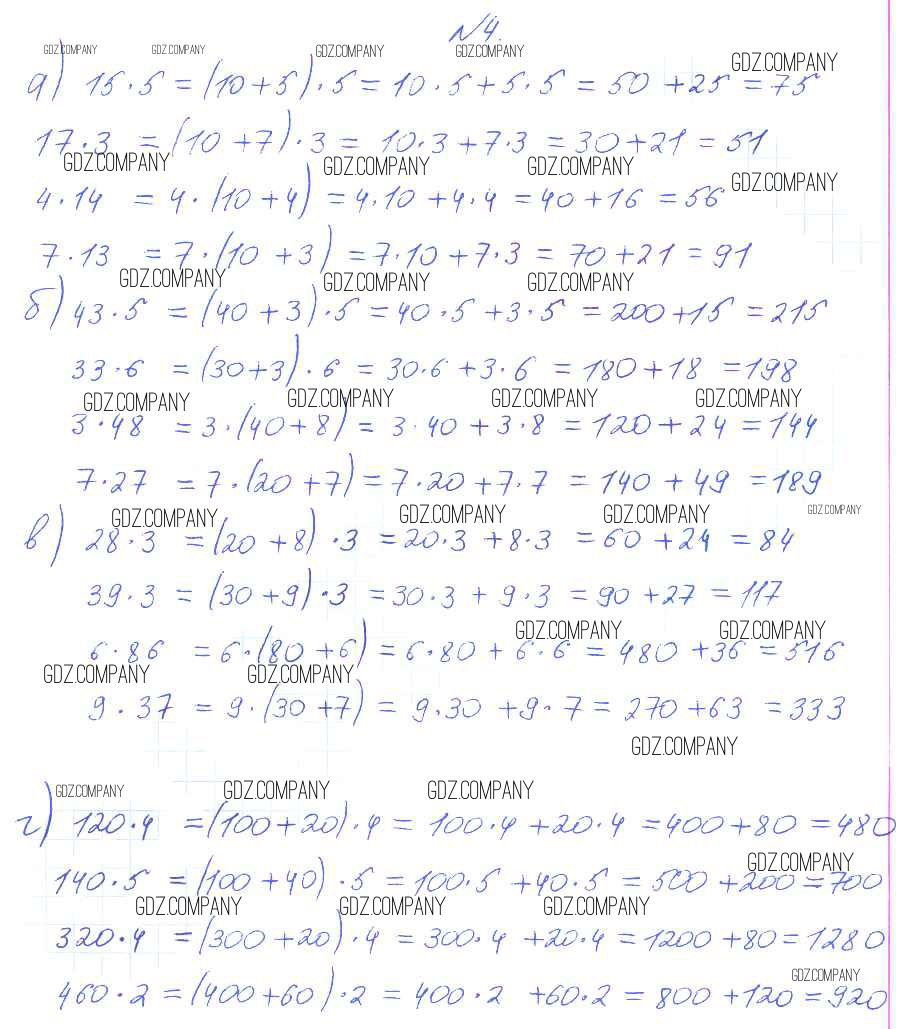 №4.
GDZ.COMPANY GDZ.COMPANY GDZ.COMPANY GDZ.COMPANY GDZ.COMPANY
а) 15·5 = (10+5)·5 = 10·5+5·5 = 50+25 = 75
17·3 = (10+7)·3 = 10·3+7·3 = 30+21 = 51
GDZ.COMPANY GDZ.COMPANY GDZ.COMPANY GDZ.COMPANY
4·14 = 4·(10+4) = 4·10+4·4 = 40+16 = 56
7·13 = 7·(10+3) = 7·10+7·3 = 70+21 = 91
GDZ.COMPANY GDZ.COMPANY GDZ.COMPANY
б) 43·5 = (40+3)·5 = 40·5+3·5 = 200+15 = 215
33·6 = (30+3)·6 = 30·6+3·6 = 180+18 = 198
GDZ.COMPANY GDZ.COMPANY GDZ.COMPANY GDZ.COMPANY
3·48 = 3·(40+8) = 3·40+3·8 = 120+24 = 144
7·27 = 7·(20+7) = 7·20+7·7 = 140+49 = 189
GDZ.COMPANY GDZ.COMPANY GDZ.COMPANY GDZ.COMPANY
в) 28·3 = (20+8)·3 = 20·3+8·3 = 60+24 = 84
39·3 = (30+9)·3 = 30·3+9·3 = 90+27 = 117
GDZ.COMPANY GDZ.COMPANY
6·86 = 6·(80+6) = 6·80+6·6 = 480+36 = 516
GDZ.COMPANY GDZ.COMPANY
9·37 = 9·(30+7) = 9·30+9·7 = 270+63 = 333
GDZ.COMPANY
GDZ.COMPANY GDZ.COMPANY GDZ.COMPANY
г) 120·4 = (100+20)·4 = 100·4+20·4 = 400+80 = 480
GDZ.COMPANY
140·5 = (100+40)·5 = 100·5+40·5 = 500+200 = 700
GDZ.COMPANY GDZ.COMPANY GDZ.COMPANY
320·4 = (300+20)·4 = 300·4+20·4 = 1200+80 = 1280
GDZ.COMPANY
460·2 = (400+60)·2 = 400·2+60·2 = 800+120 = 920